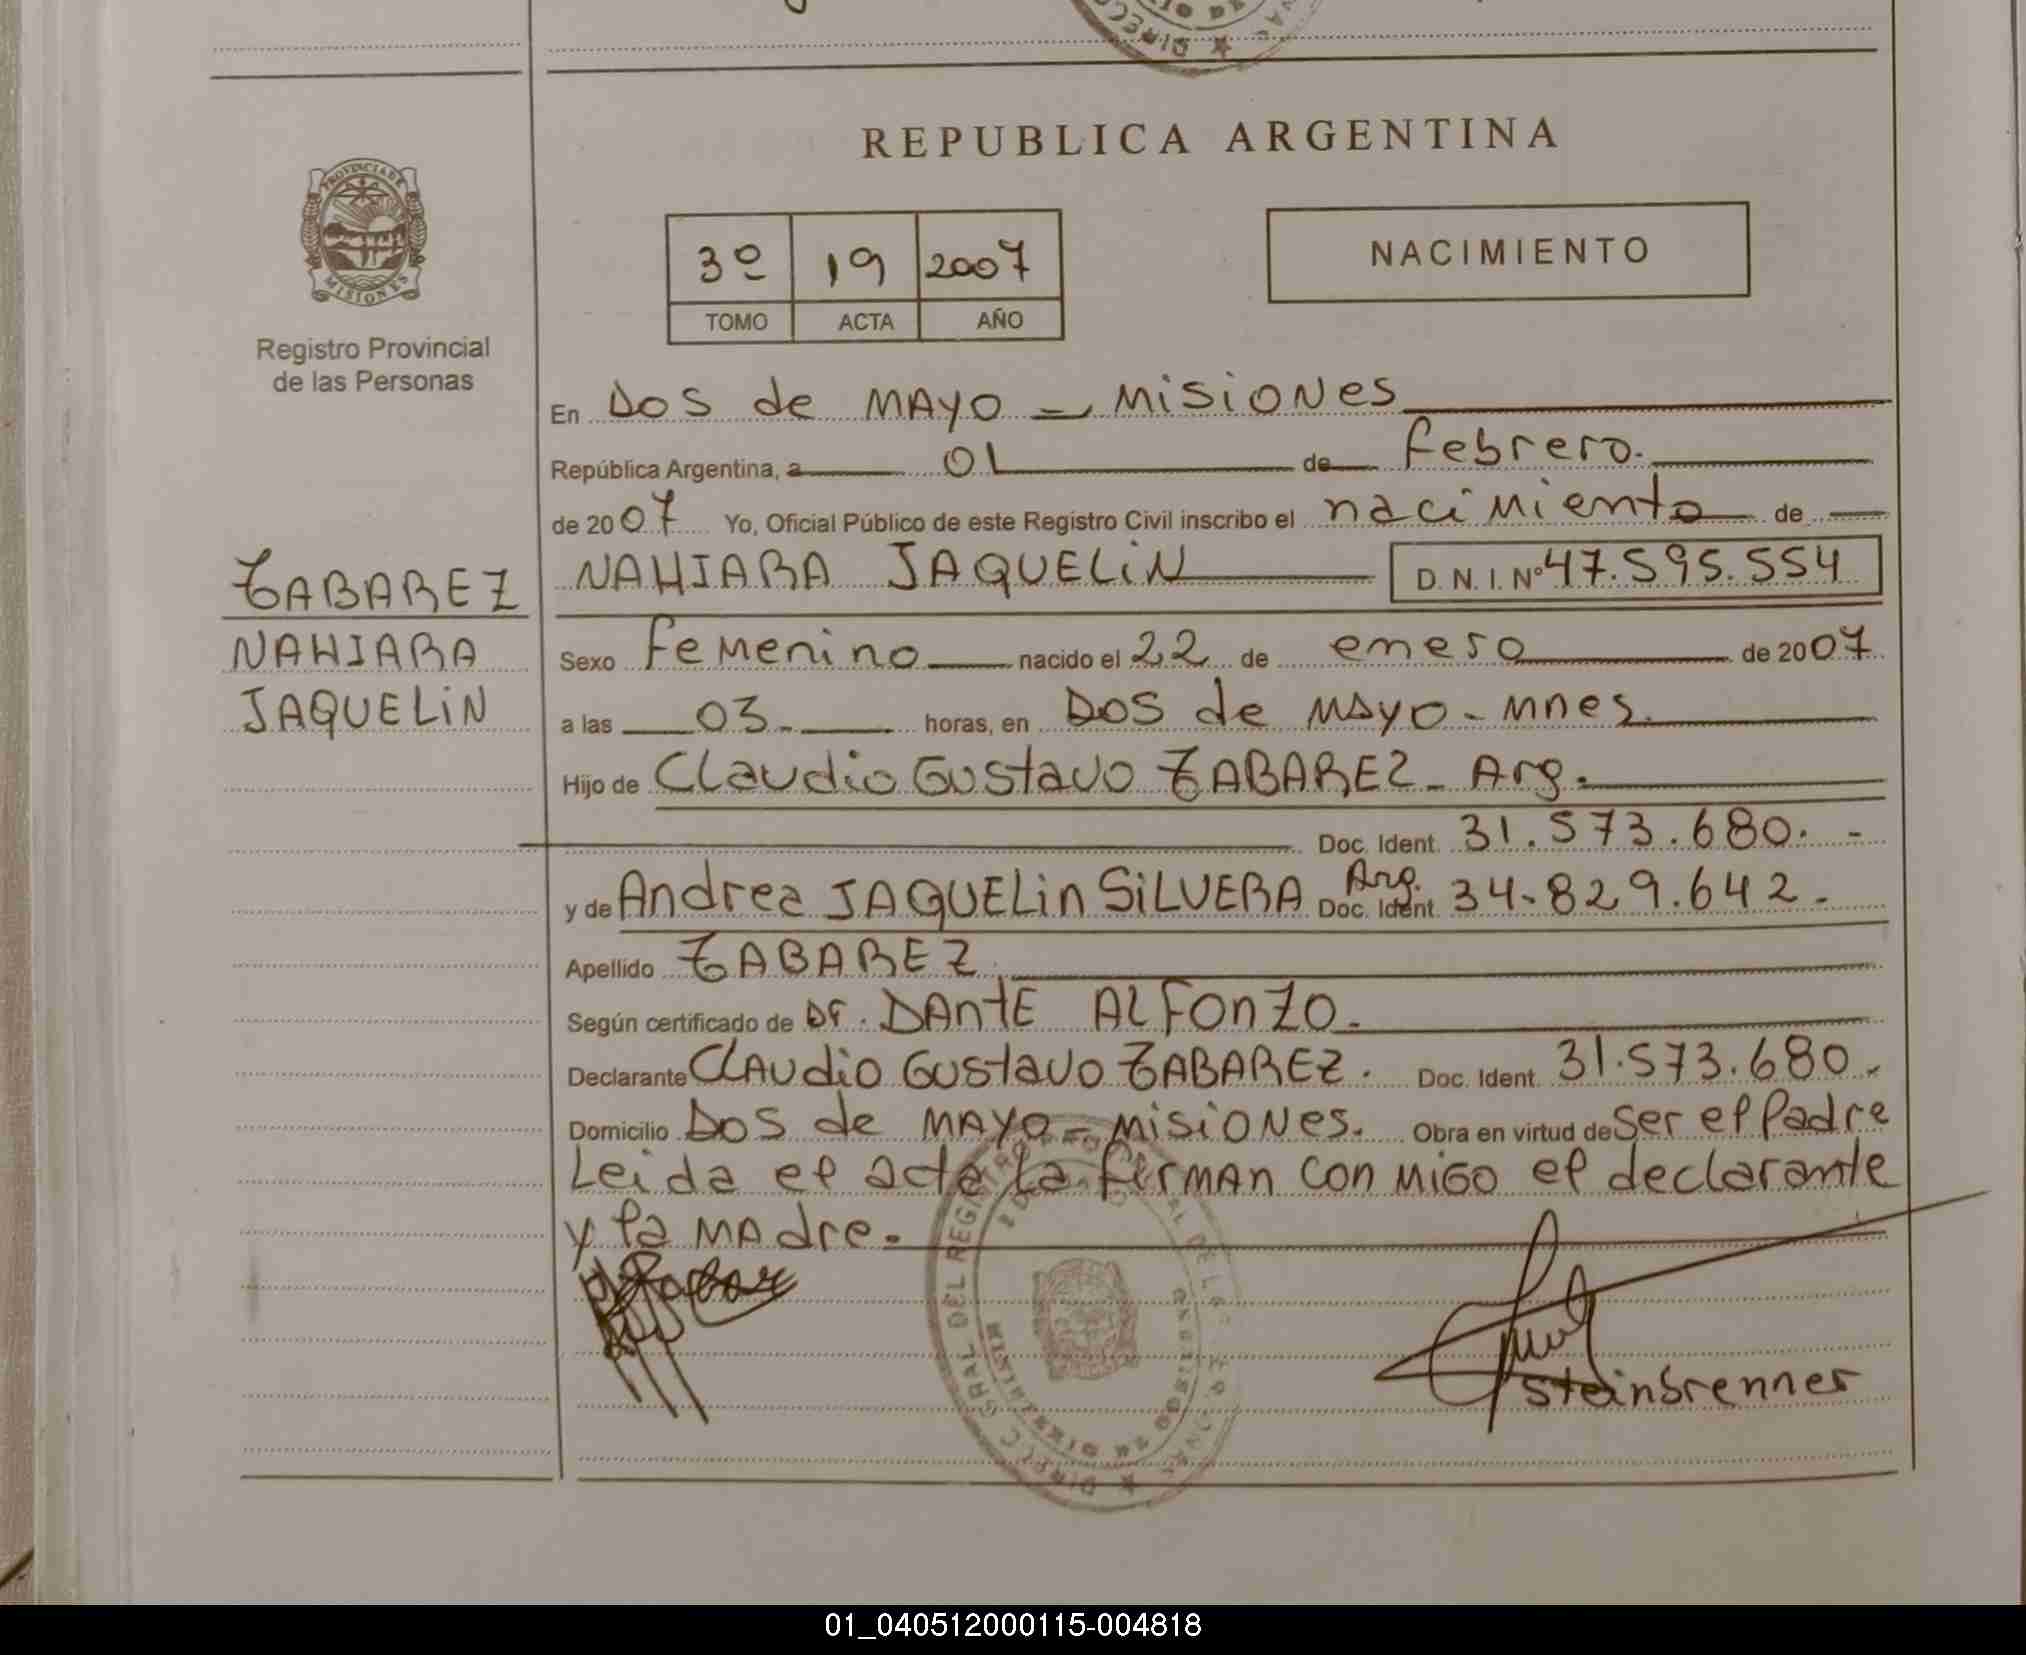 REPUBLICA ARGENTINA
PROVINCIA DE
MISIONES
Registro Provincial
de las Personas
3º 19 2007
TOMO ACTA AÑO
NACIMIENTO
En Dos de MAYO - Misiones
República Argentina, a 01 de febrero.
de 2007 Yo, Oficial Público de este Registro Civil inscribo el nacimiento de
TABAREZ
NAHIARA
JAQUELIN
NAHIARA JAQUELIN D.N.I. Nº 47.595.554
Sexo femenino nacido el 22 de enero de 2007
a las 03.- horas, en Dos de Mayo - Mnes.
Hijo de Claudio Gustavo TABAREZ - Arg.
Doc. Ident. 31.573.680.-
y de Andrea JAQUELin SiLVERA Arg. Doc. Ident. 34.829.642.-
Apellido TABAREZ
Según certificado de Dr. DAntE ALFOnZO.
Declarante CLAudio Gustavo TABAREZ. Doc. Ident. 31.573.680.-
Domicilio Dos de MAYO - Misiones. Obra en virtud de Ser el Padre
Leida el acta la firman con migo el declarante
y la Madre.
Steinbrenner
01_040512000115-004818